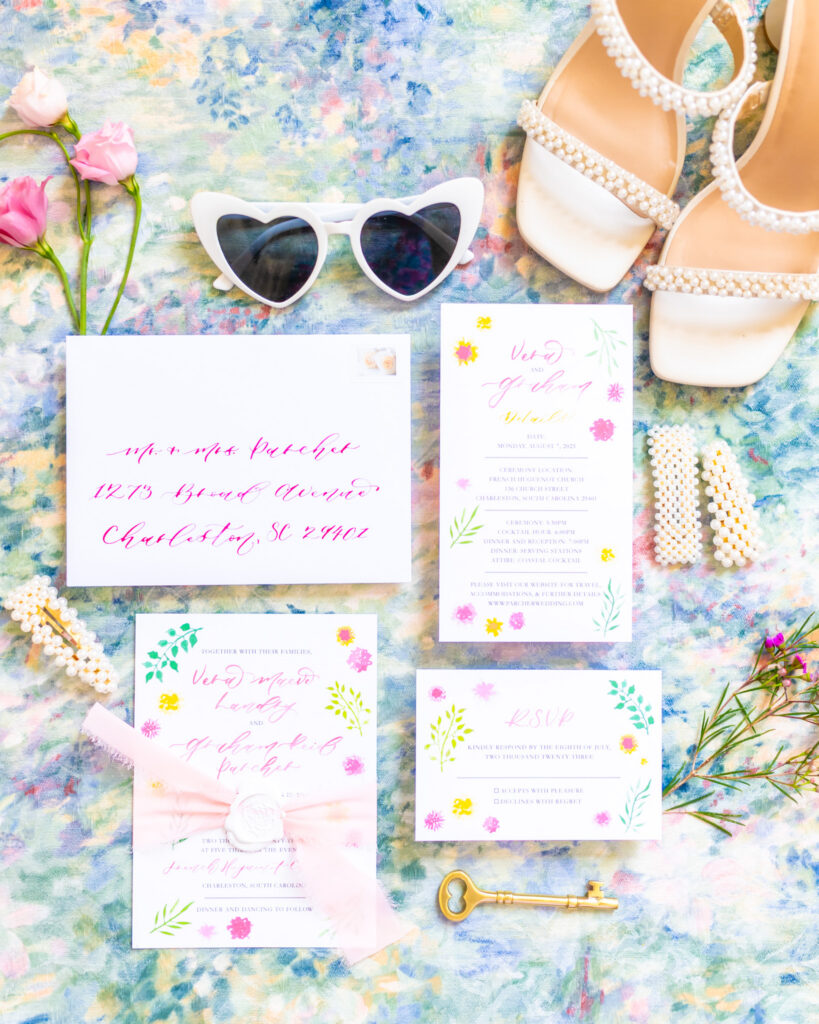 Mr. & Mrs. Parcher
1273 Broad Avenue
Charleston, SC 29401
Vera
AND
Graham
Details
DATE:
MONDAY, AUGUST 7, 2023
CEREMONY LOCATION:
FRENCH HUGUENOT CHURCH
136 CHURCH STREET
CHARLESTON, SOUTH CAROLINA 29401
CEREMONY: 5:30PM
COCKTAIL HOUR: 6:00PM
DINNER AND RECEPTION: 7:00PM
DINNER: SERVING STATIONS
ATTIRE: COASTAL COCKTAIL
PLEASE VISIT OUR WEBSITE FOR TRAVEL,
ACCOMMODATIONS, & FURTHER DETAILS
WWW.PARCHERWEDDING.COM
TOGETHER WITH THEIR FAMILIES,
Vera Maeve
Landry
AND
Graham Reid
Parcher
TWO TH
AT FIVE TH THE EVEN
French Huguenot
CHARLESTON, SOUTH CAROLIN
DINNER AND DANCING TO FOLLOW
RSVP
KINDLY RESPOND BY THE EIGHTH OF JULY,
TWO THOUSAND TWENTY THREE
ACCEPTS WITH PLEASURE
DECLINES WITH REGRET